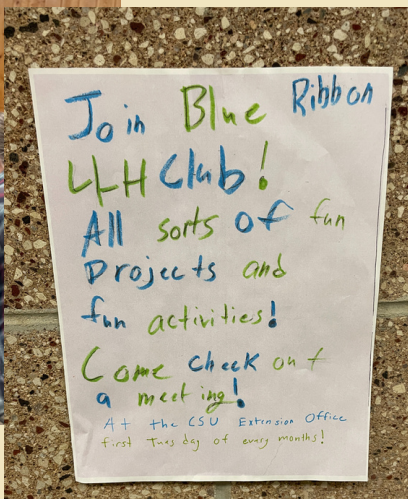 Join Blue Ribbon
4H Club!
All sorts of fun
Projects and
fun activities!
Come check out
a meeting!
At the CSU Extension Office
first Tuesday of every months!